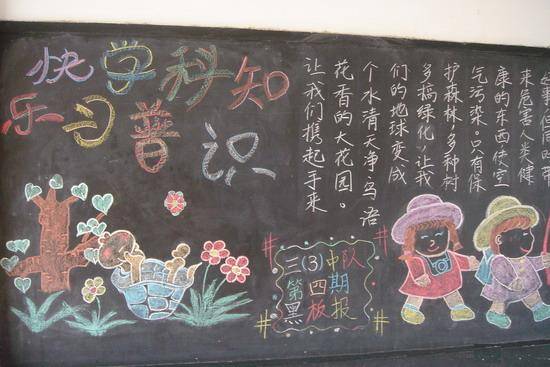 快乐学习科普知识
来危害人类健
康的东西使空
气污染。只有保
护森林，多种树
多搞绿化，让我
们的地球变成
个水清天净鸟语
花香的大花园。
让我们携起手来
三(3)中队
第四期
黑板报